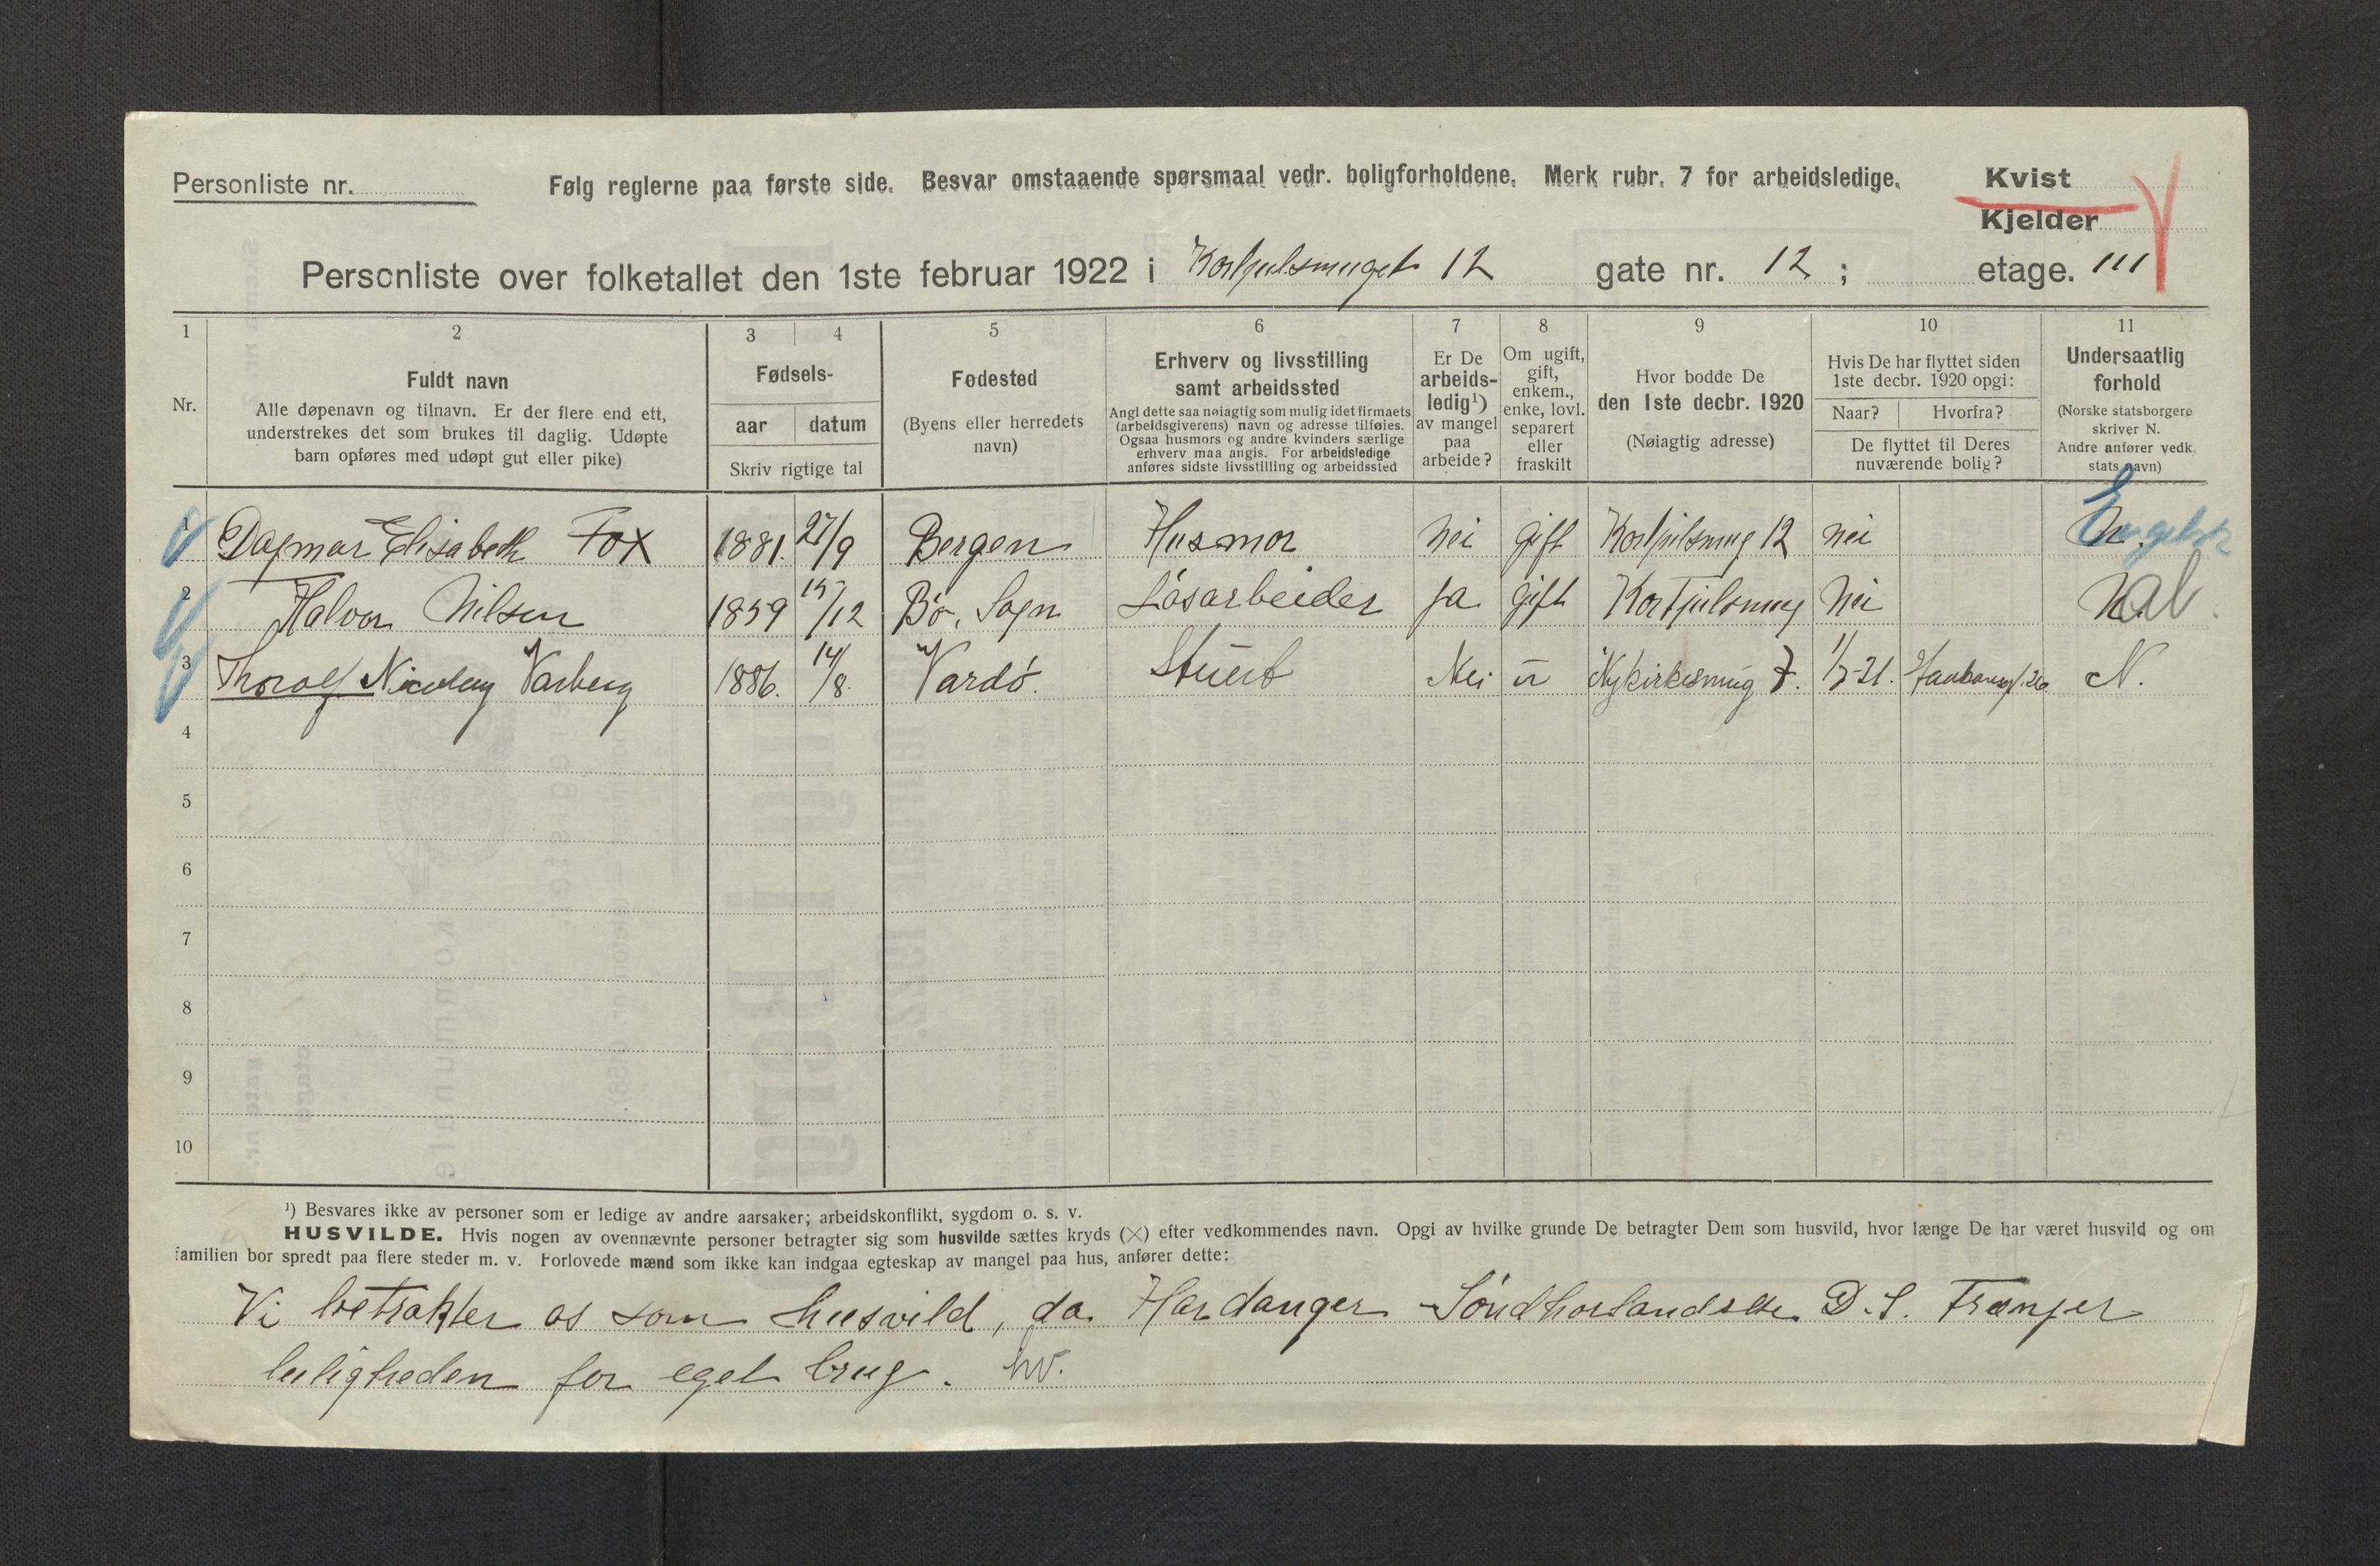 Personliste nr.
Følg reglerne paa første side. Besvar omstaaende spørsmaal vedr. boligforholdene. Merk rubr. 7 for arbeidsledige.
Kvist
Kjelder
Personliste over folketallet den 1ste februar 1922 i Kortpilsmuget 12 gate nr. 12 ; etage. III
1 2 3 4 5 6 7 8 9 10 11
Nr.
Fuldt navn
Alle døpenavn og tilnavn. Er der flere end ett,
understrekes det som brukes til daglig. Udøpte
barn opføres med udøpt gut eller pike)
Fødsels-
aar datum
Skriv rigtige tal
Fødested
(Byens eller herredets
navn)
Erhverv og livsstilling
samt arbeidssted
Angi dette saa nøiagtig som mulig idet firmaets
(arbeidsgiverens) navn og adresse tilføies.
Ogsaa husmors og andre kvinders særlige
erhverv maa angis. For arbeidsledige
anføres sidste livsstilling og arbeidssted
Er De
arbeids-
ledig¹)
av mangel
paa
arbeide?
Om ugift,
gift,
enkem.,
enke, lovl.
separert
eller
fraskilt
Hvor bodde De
den 1ste decbr. 1920
(Nøiagtig adresse)
Hvis De har flyttet siden
1ste decbr. 1920 opgi:
Naar? Hvorfra?
De flyttet til Deres
nuværende bolig?
Undersaatlig
forhold
(Norske statsborgere
skriver N.
Andre anfører vedk.
stats navn)
1 Dagmar Elisabeth Fox 1881. 27/9 Bergen Husmor Nei gift Kortpilsmug 12 nei N. Engelsk
2 Halvor Nilsen 1859 15/12 Bö, Sogn Løsarbeider Ja gift Kortpilsmug Nei N. al.
3 Thorolf Nicolay Varberg 1886. 14/8. Vardö. Stuert Nei u Nykirkesmug 7. N.
4
5
6
7
8
9
10
¹) Besvares ikke av personer som er ledige av andre aarsaker; arbeidskonflikt, sygdom o. s. v.
HUSVILDE. Hvis nogen av ovennævnte personer betragter sig som husvilde sættes kryds (×) efter vedkommendes navn. Opgi av hvilke grunde De betragter Dem som husvild, hvor længe De har været husvild og om
familien bor spredt paa flere steder m. v. Forlovede mænd som ikke kan indgaa egteskap av mangel paa hus, anfører dette:
Vi betrakter os som husvild, da Hardanger Söndhorlandske D.S. Trænger
leiligheden for eget brug. hv.